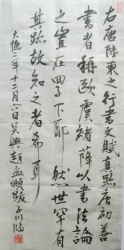 右唐陸柬之行書文賦真蹟唐初善
書者稱歐虞褚薛以書法論
之豈在四子下耶然世罕有
其蹟故知之者希耳
大德二年十二月六日吳興趙孟頫跋